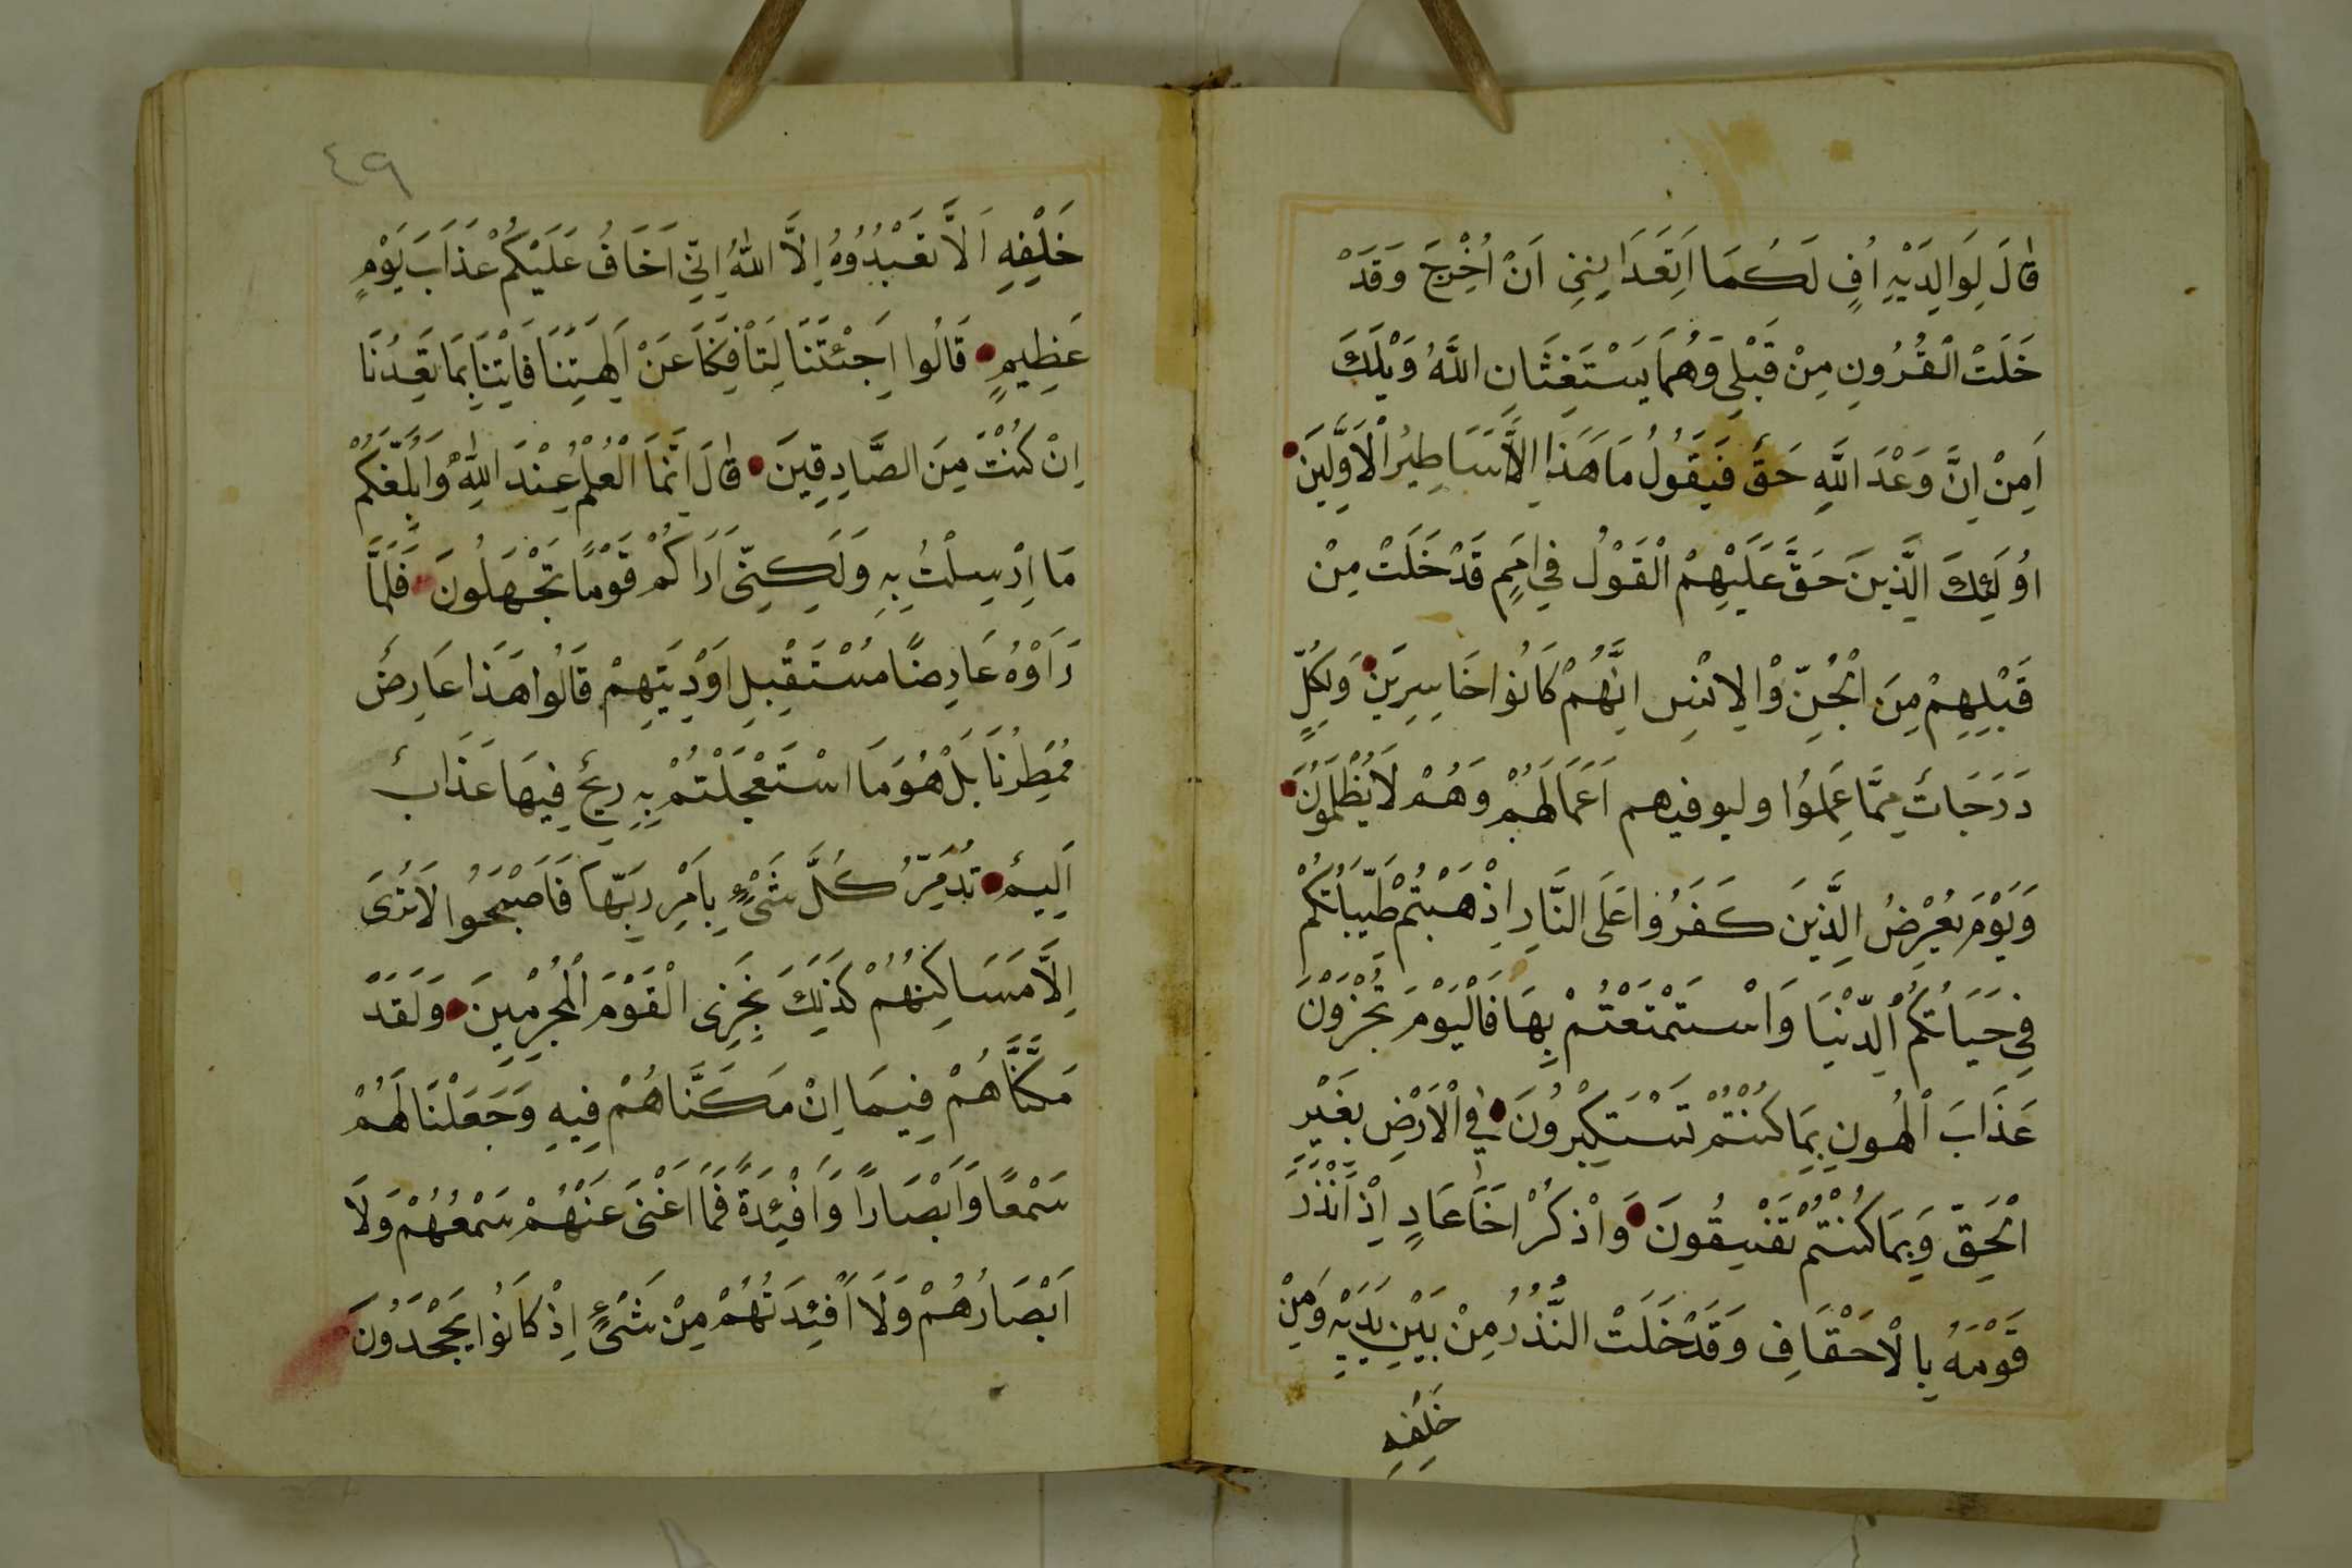 قٰالَ لِوَالِدَيْهِ اُفٍ لَكُمَا اَتَعَدَانِنِى اَنْ اُخْرِجَ وَقَدْ
خَلَتْ الْقُرُونِ مِنْ قَبْلِى وَهُمَا يَسْتَغِثَانِ اللَّهُ وَيْلَكَ
اَمِنْ اِنَّ وَعْدَ اللَّهِ حَقٌّ فَيَقُولُ مَا هَذَا اِلَّا اَسَاطِيرُ الْاَوَّلِينَ
اُولَئِكَ الَّذِينَ حَقَّ عَلَيْهِمْ الْقَوْلُ فِى اُمَمٍ قَدْ خَلَتْ مِنْ
قَبْلِهِمْ مِنَ الْجِنِّ وَالْاِنْسِ اِنَّهُمْ كَانُوا خَاسِرِينَ وَلِكُلٍّ
دَرَجَاتٌ مِمَّا عَمِلُوا وليوفيهم اَعْمَالَهُمْ وَهُمْ لَا يُظْلَمُونَ
وَيَوْمَ يُعْرَضُ الَّذِينَ كَفَرُوا عَلَى النَّارِ اِذْهَبْتُمْ طَيِّبَاتُكُمْ
فِى حَيَاتُكُمْ الدُّنْيَا وَاسْتَمْتَعْتُمْ بِهَا فَالْيَوْمَ تُجْزَوْنَ
عَذَابَ الْهُونِ بِمَا كُنْتُمْ تَسْتَكْبِرُونَ فِى الْاَرْضِ بِغَيْرِ
الْحَقِّ وَبِمَا كُنْتُمْ تَفْسِقُونَ وَاذْكُرْ اَخَا عَادٍ اِذْ اَنْذَرَ
قَوْمَهُ بِالْاَحْقَافِ وَقَدْ خَلَتْ النُّذُرُ مِنْ بَيْنِ يَدَيْهِ وَمِنْ
خَلْفِهِ
٤٩
خَلْفِهِ اَلَّا تَعْبُدُوهُ اِلَّا اللّٰهُ اِنِّى اَخَافُ عَلَيْكُمْ عَذَابَ يَوْمٍ
عَظِيمٍ قَالُوا اَجِئْتَنَا لِتَأْفِكَنَا عَنْ اَلِهَتِنَا فَاْتِنَا بِمَا تَعِدُنَا
اِنْ كُنْتَ مِنَ الصَّادِقِينَ قٰالَ اِنَّمَا الْعِلْمُ عِنْدَ اللّٰهِ وَاُبَلِّغُكُمْ
مَا اُرْسِلْتُ بِهِ وَلَكِنِّى اَرَاكُمْ قَوْمًا تَجْهَلُونَ فَلَمَّا
رَاَوْهُ عَارِضًا مُسْتَقْبِلِ اَوْدِيَتِهِمْ قَالُوا هَذَا عَارِضٌ
مُمْطِرُنَا بَلْ هُوَ مَا اسْتَعْجَلْتُمْ بِهِ رِيحٌ فِيهَا عَذَابٌ
اَلِيمٌ تُدَمِّرُ كُلَّ شَىْءٍ بِاَمْرِ رَبِّهَا فَاَصْبَحُوا لَا تُرَى
اِلَّا مَسَاكِنُهُمْ كَذَلِكَ نَجْزِى الْقَوْمَ الْمُجْرِمِينَ وَلَقَدْ
مَكَّنَّاهُمْ فِيمَا اِنْ مَكَنَّاهُمْ فِيهِ وَجَعَلْنَا لَهُمْ
سَمْعًا وَاَبْصَارًا وَاَفْئِدَةً فَمَا اَغْنَى عَنْهُمْ سَمْعُهُمْ وَلَا
اَبْصَارُهُمْ وَلَا اَفْئِدَتُهُمْ مِنْ شَىْءٍ اِذْ كَانُوا يَجْحَدُونَ